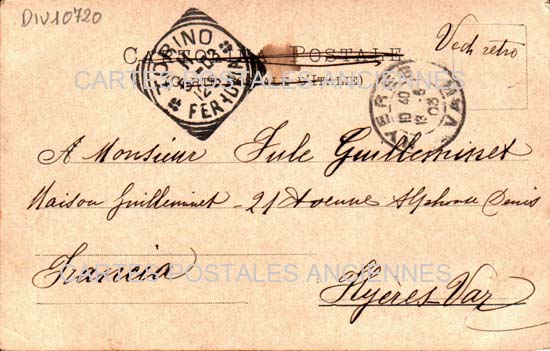 DIV10720
Vedi retro
CARTOLINA POSTALE
CARTES POSTALES ANCIENNES
TORINO
FERROVIA
HYÈRES
VAR
10 40
13 - 5
03
A Monsieur Jule Guilleminet
Maison Guilleminet - 21 Avenue Alphonse Denis
Francia
CARTES POSTALES ANCIENNES
Hyères Var